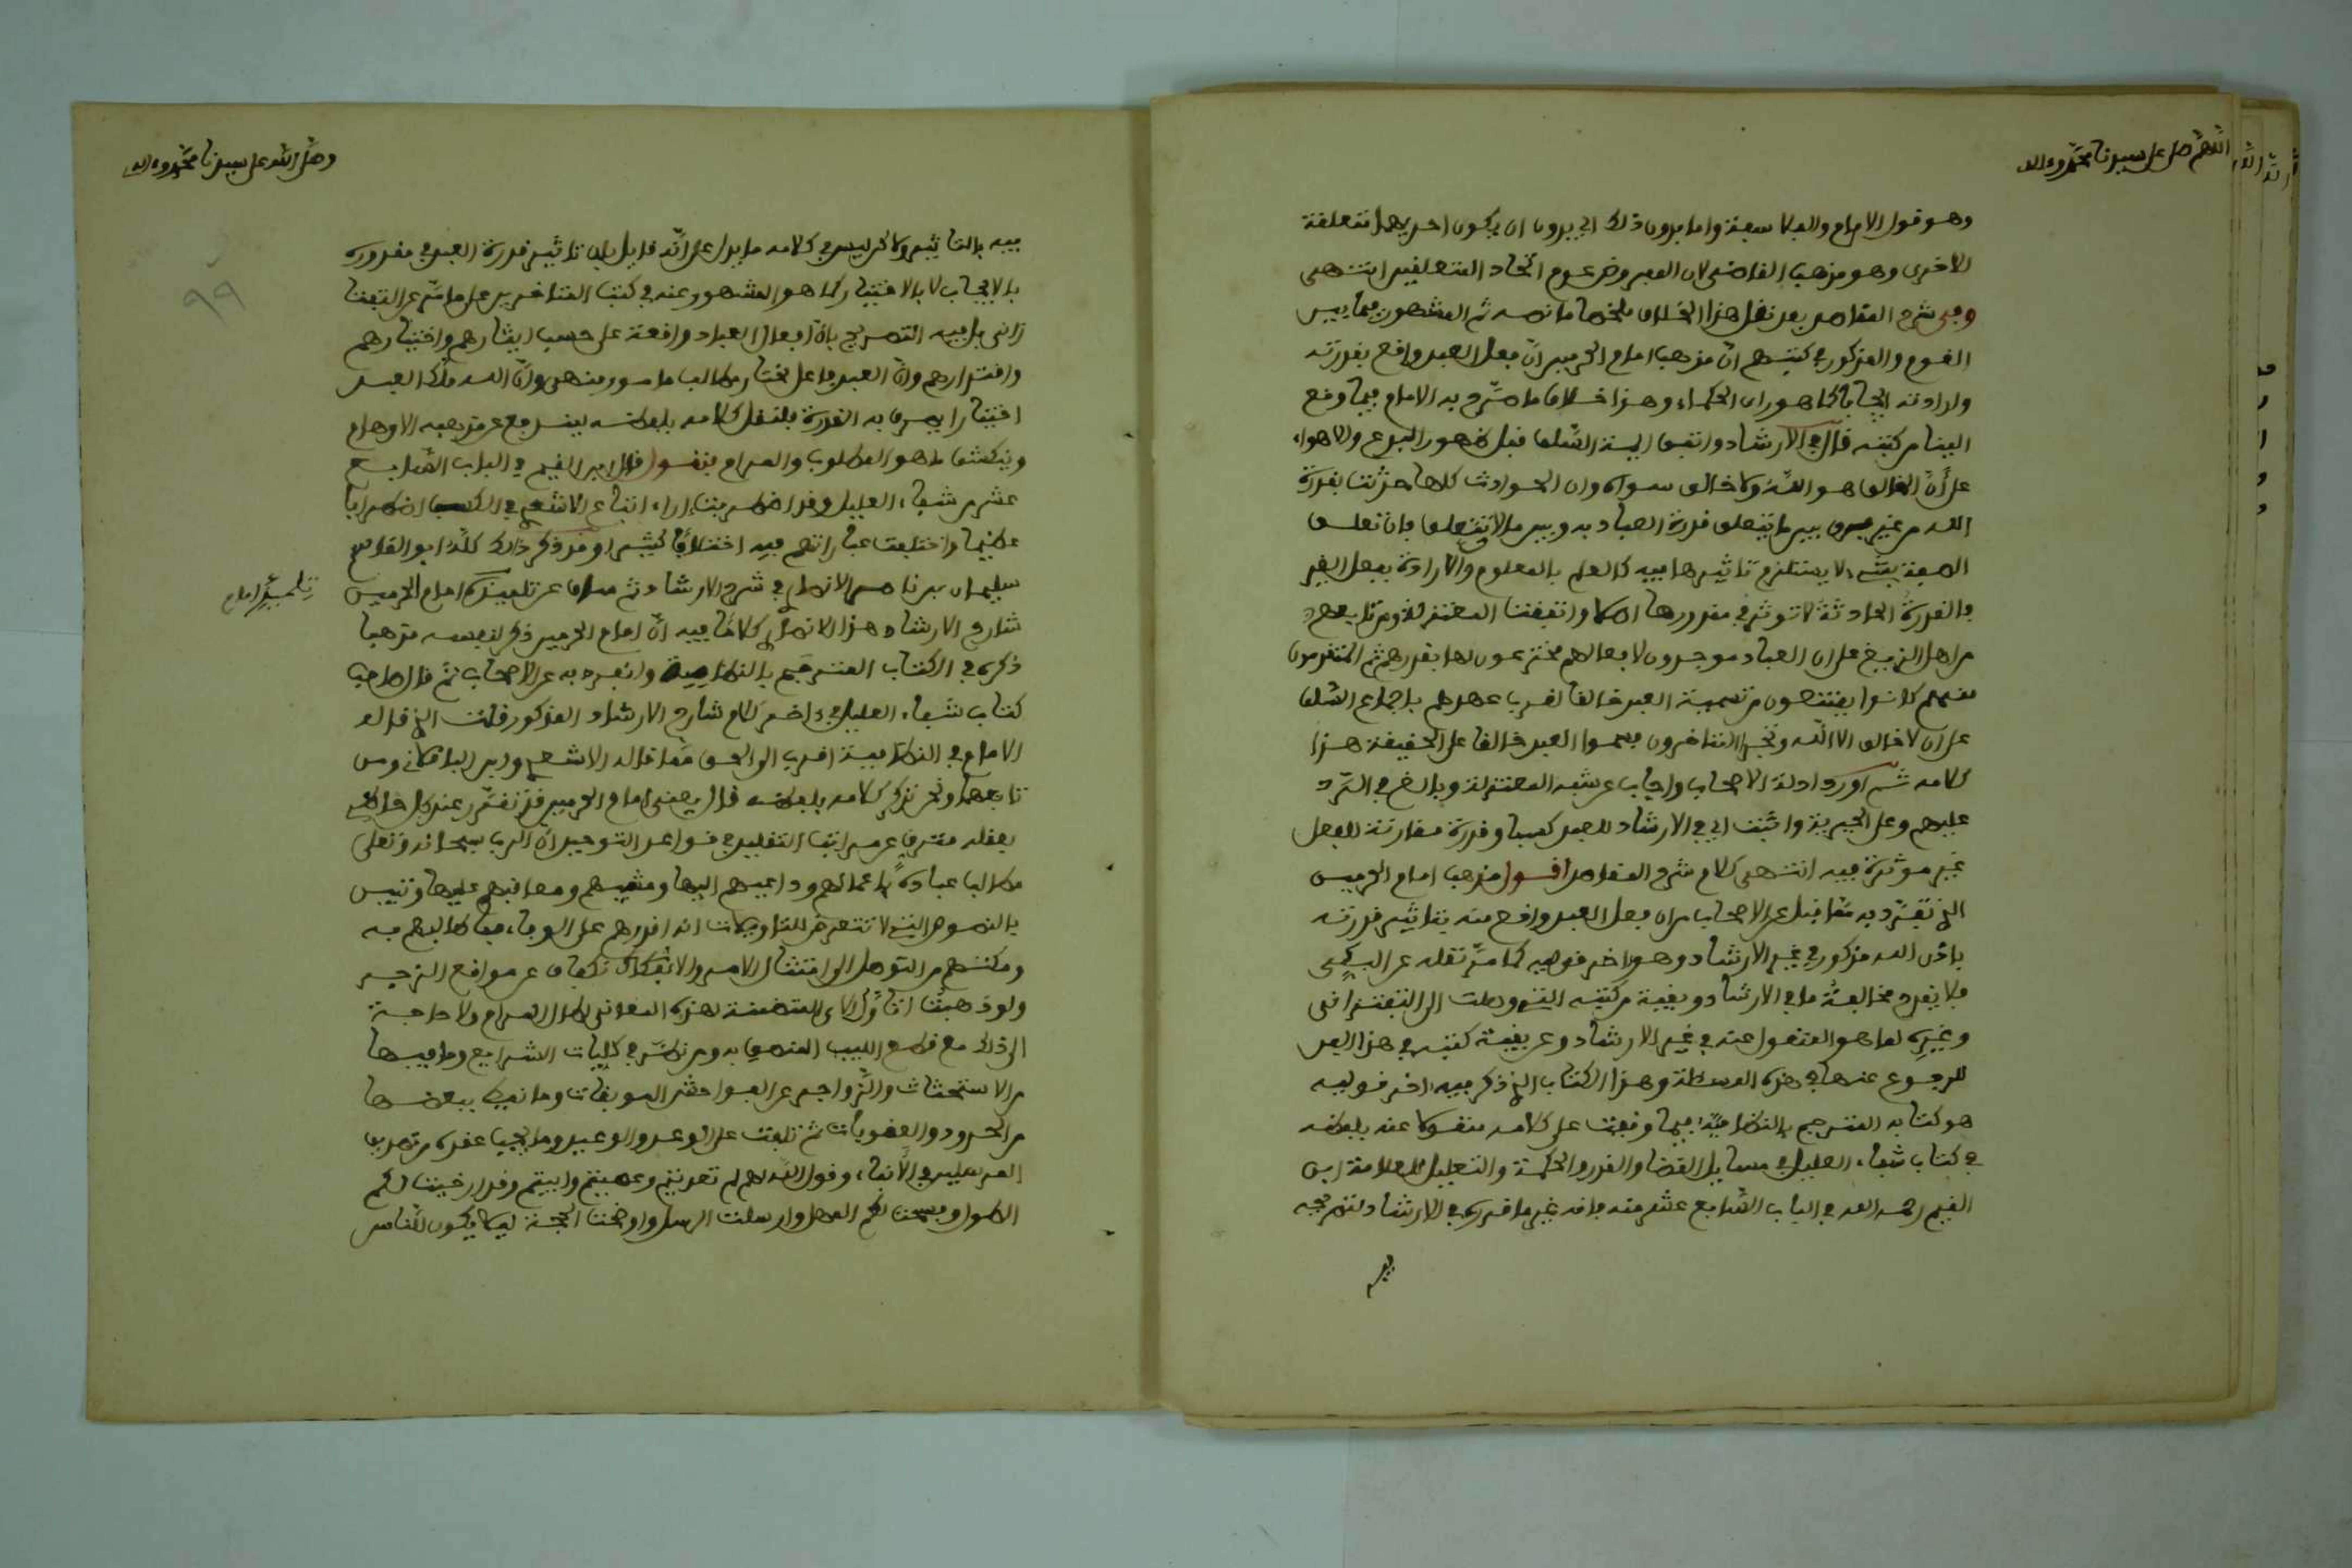 اللهم صل على سيدنا محمد وءاله
وهو قول الامام والفلاسفة واما بدون ذلك اي بدون ان يكون احديهما متعلقة
الاخرى وهو مذهب القاضى لان المفروض عدم اتحاد المتعلقين انتهى
وفى شرح المقاصد بعد نقل هذا الخلاف ملخصا ما نصه ثم المشهور فيما بين
القوم والمذكور في كتبهم انّ مذهب امام الحرمين انّ فعل العبد واقع بقدرته
وارادته ايجابا كما هو راى الحكماء وهذا خلاف ما صرّح به الامام فيما وقع
الينا من كتبه قال في الارشاد واتفق ايمة السّلف قبل ظهور البدع والاهواء
على أنّ الخالق هو اللّه ولا خالق سواه وان الحوادث كلها حدثت بقدرة
الله من غير فرق بين ما يتعلق قدرة العباد به وبين ما لا يتعلق فان تعلق
الصفة بشىء لا يستلزم تاثيرها فيه كالعلم بالمعلوم والارادة بفعل الغير
فالقدرة الحادثة لا توثر في مقدورها اصلا واتفقت المعتزلة ومن تابعهم
من اهل الزيغ على ان العباد موجدون لافعالهم مخترعون لها بقدرهم ثم المتقدمون
منهم كانوا يمتنعون من تسمية العبد خالقا لقرب عهدهم باجماع السّلف
على ان لا خالق الا اللّه وتجرا المتاخرون فسموا العبد خالقا على الحقيقة هذا
كلامه ثم اورد ادلة الاصحاب واجاب عن شبه المعتزلة وبالغ في الرّد
عليهم وعلى الجبرية واثبت اي في الارشاد للعبد كسبا وقدرة مقارنة للفعل
غير موثرة فيه انتهى كلام شرح المقاصد اقول مذهب امام الحرمين
الذي تفرّد به عمّا قبله عن الاصحاب من ان فعل العبد واقع منه بتاثير قدرته
باذن الله مذكور في غير الارشاد وهو اخر قوليه كما مرّ نقله عن السبكى
فلا يقدح مخالفة ما في الارشاد وبقية من كتبه التي وصلت الى التفتزانى
وغيره لما هو المنقول عنه في غير الارشاد وعن بقية كتبه في هذا البعد
للرجوع عنها في هذه المسئلة وهذا الكتاب الذي ذكر فيه اخر قوليه
هو كتابه المترجم بالنظاميّة فيما وقفت على كلامه منقولا عنه بلفظه
في كتاب شفاء العليل في مسايل القضا والقدر والحكمة والتعليل للعلامة ابن
القيم رحمه الله في الباب السّابع عشر منه فانه غير ما قرره في الارشاد لتصريحه
فيه
وصلّى اللّه على سيدنا محمّد وءاله
٩٩
فيه بالتاثير ولاكن ليس في كلامه ما يدل على أنّه قايل بان تاثير قدرة العبد في مقدوره
بالايجاب لا بالاختيار كما هو المشهور عنه في كتب المتاخرين على ما مرّ عن التفتا
زانى بل فيه التصريح بانّ افعال العباد واقعة على حسب ايثارهم واختيارهم
واقتدارهم وانّ العبد فاعل مختار مطالب مامور منهى وانّ الله ملّك العبد
اختيارا يصرف به القدرة فلننقل كلامه بلفظه لينرفع عن مذهبه الاوهام
وينكشف ما هو المطلوب والمرام فنقول قال ابن القيم في الباب السّابع
عشر من شفاء العليل وقد اضطربت اراء اتباع الاشعري في الكسب اضطرابا
عظيما واختلفت عباراتهم فيه اختلافا كثيرا وقد ذكر ذالك كلّه ابو القاسم
سليمان بن ناصر الانصاري في شرح الارشاد ثم ساق عن تلميذه امام الحرمين
تلميذ امام
شارح الارشاد هذا الانصاري كلامًا فيه انّ امام الحرمين ذكر لنفسه مذهبا
ذكره في الكتاب المترجم بالنظامية وانفرد به عن الاصحاب ثمّ قال صاحب
كتاب شفاء العليل في ءاخر كلام شارح الارشاد المذكور قلت الذي قاله
الامام في النظامية اقرب الى الحق ممّا قاله الاشعري وابن الباقلانى ومن
تابعهما ونحن نذكر كلامه بلفظه قال يعنى امام الحرمين قد تقرّر عند كل حاظ
بعقله مترق عن مراتب التقليد في قواعد التوحيد انّ الرب سبحانه وتعلى
مطالب عباده باعمالهم وداعيهم اليها ومثيبهم ومعاقبهم عليها وتبين
بالنصوص التي لا تتعرض للتاويلات انه اقدرهم على الوفاء بما طالبهم به
ومكنهم من التوصل الى امتثال الامر والانكفاف عن مواقع الزجر
ولو ذهبت اتلو الاى المتضمنة لهذه المعانى لطال المرام ولا حاجة
الى ذالك مع قطع اللبيب المنصف به ومن نظر في كليات الشرايع وما فيها
من الاستحثاث والزّواجر عن الفواحش الموبقات وما نيط ببعضها
من الحدود والعقوبات ثم تلفت على الوعد والوعيد وما يجب عقده من تصديق
المرسلين في الأنباء وقول اللّه لهم لم تعديتم وعصيتم وابيتم وقد ارخيت لكم
الطول وفسحت لكم المهل وارسلت الرسل واوضحت الحجة ليلا يكون للناس